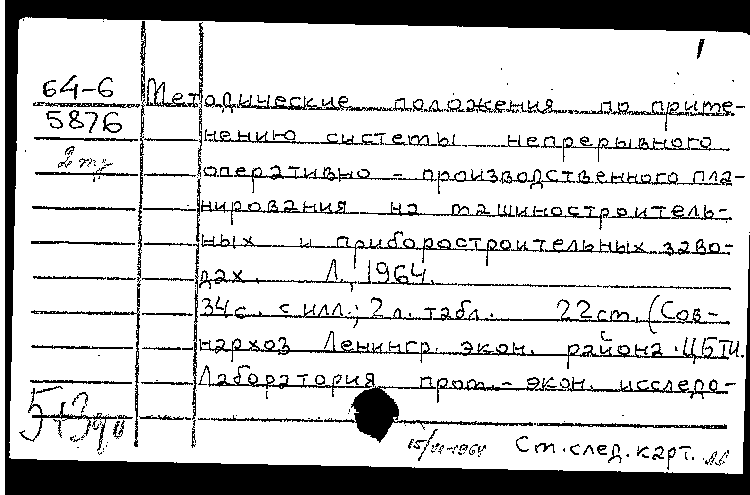 1
64-6
5876
2 тж
Методические положения по приме-
нению системы непрерывного
оперативно-производственного пла-
нирования на машиностроитель-
ных и приборостроительных заво-
дах. Л., 1964.
34с. с илл.; 2 л. табл. 22см. (Сов-
нархоз Ленингр. экон. района. ЦБТИ.
Лаборатория пром.-экон. исследо-
Ст. след. карт.